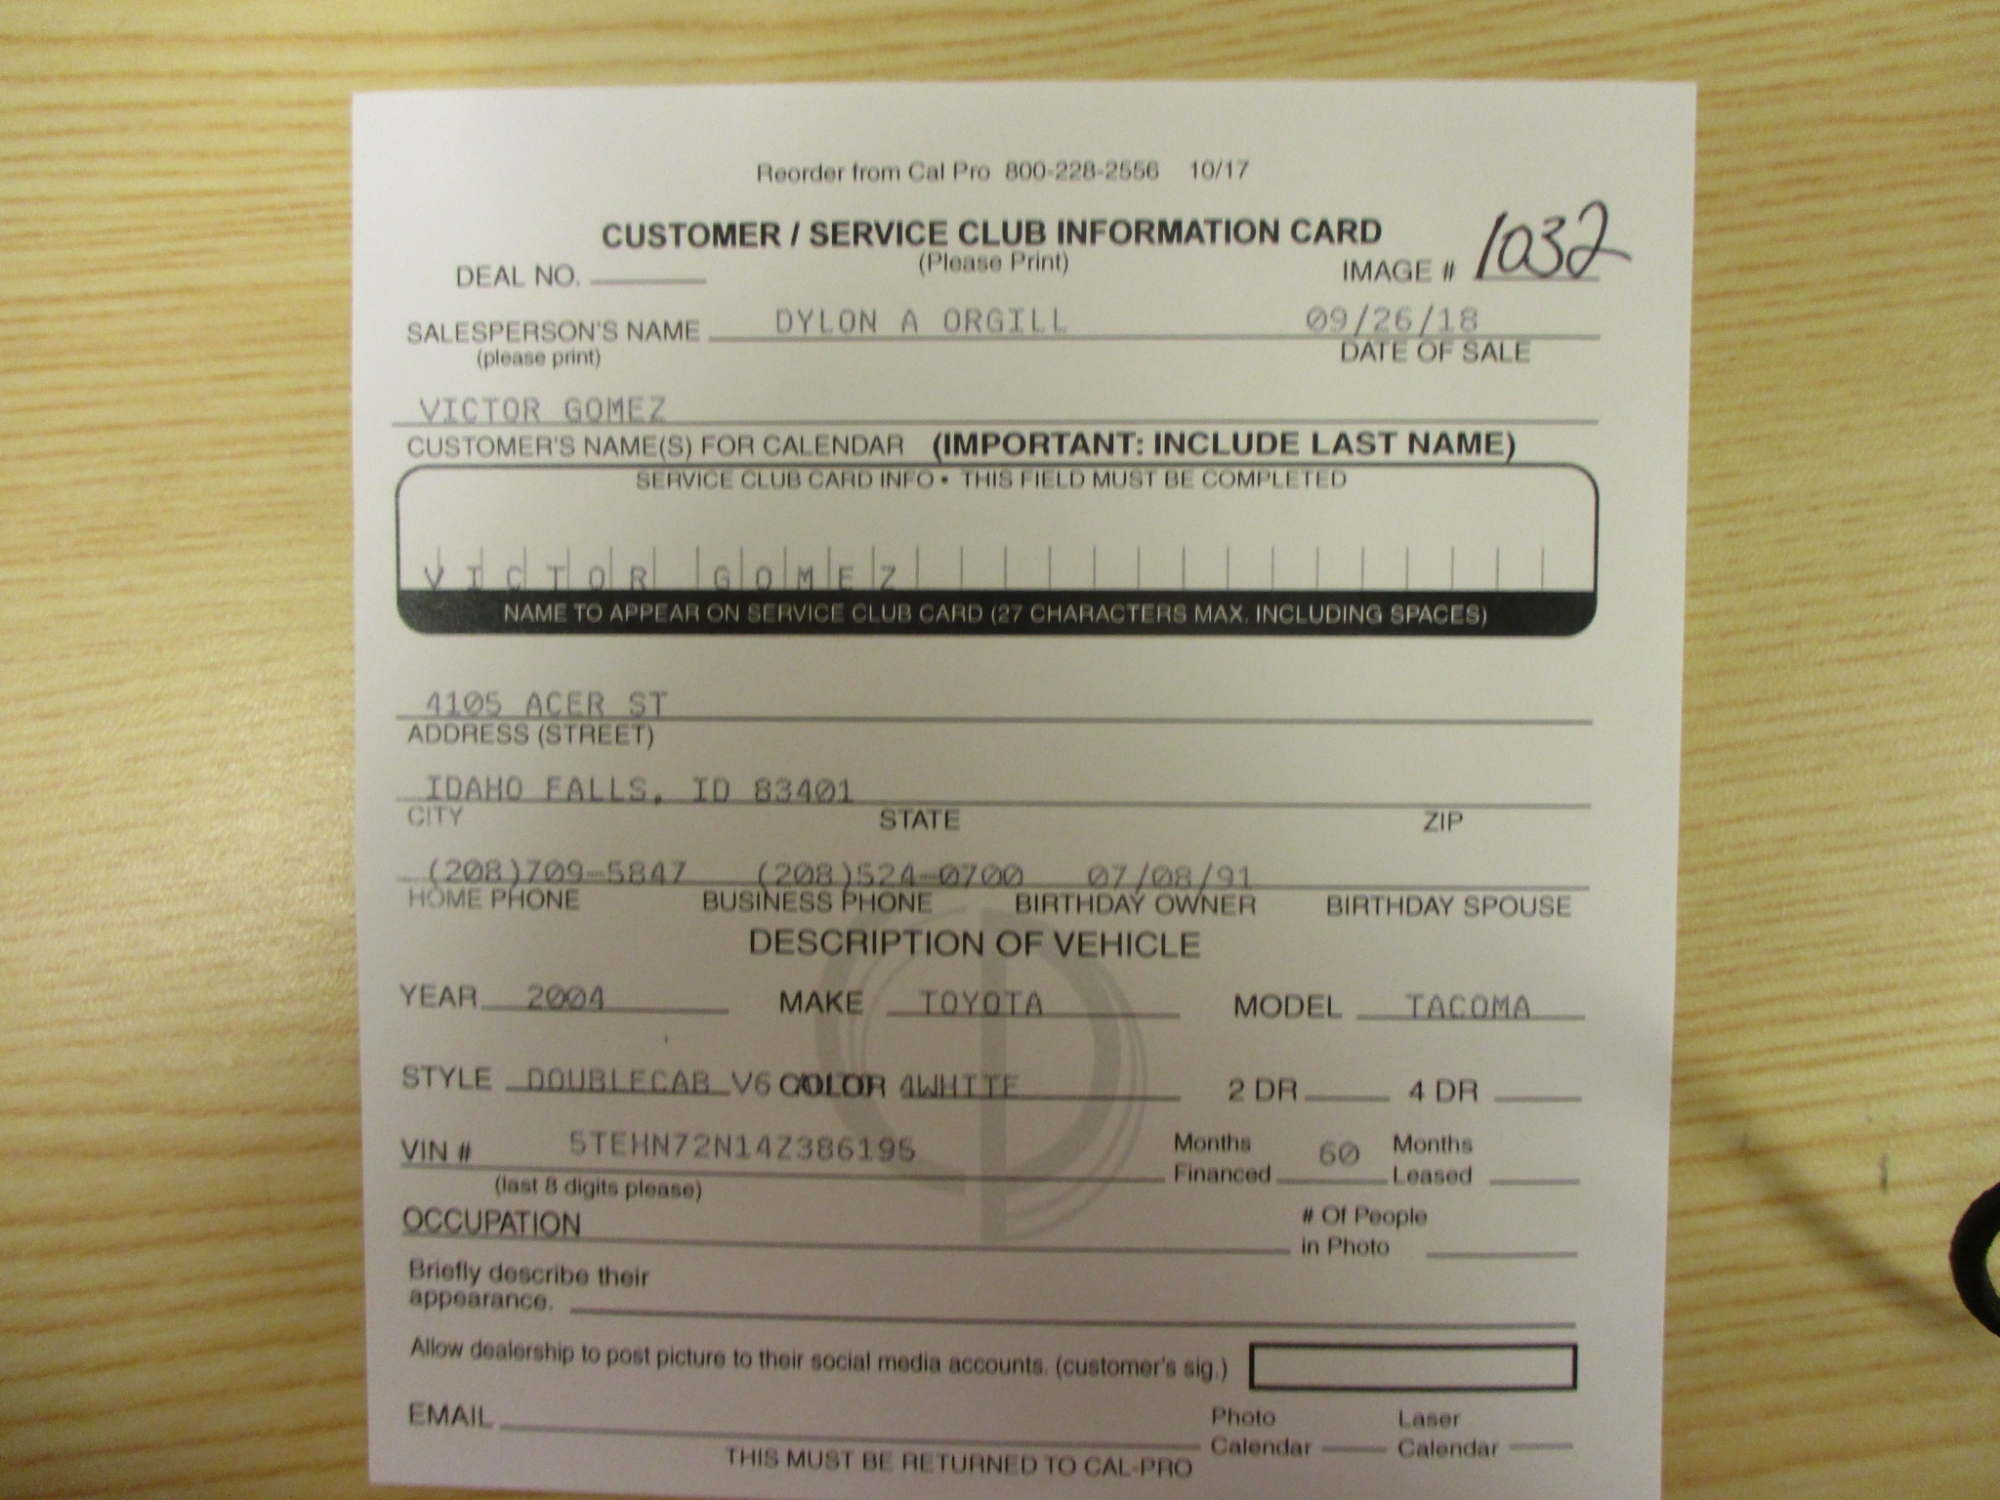 Reorder from Cal Pro 800-228-2556 10/17
CUSTOMER / SERVICE CLUB INFORMATION CARD
(Please Print)
DEAL NO. IMAGE # 1032
SALESPERSON'S NAME DYLON A ORGILL 09/26/18
(please print) DATE OF SALE
VICTOR GOMEZ
CUSTOMER'S NAME(S) FOR CALENDAR (IMPORTANT: INCLUDE LAST NAME)
SERVICE CLUB CARD INFO • THIS FIELD MUST BE COMPLETED
VICTOR GOMEZ
NAME TO APPEAR ON SERVICE CLUB CARD (27 CHARACTERS MAX. INCLUDING SPACES)
4105 ACER ST
ADDRESS (STREET)
IDAHO FALLS, ID 83401
CITY STATE ZIP
(208)709-5847 (208)524-0700 07/08/91
HOME PHONE BUSINESS PHONE BIRTHDAY OWNER BIRTHDAY SPOUSE
DESCRIPTION OF VEHICLE
YEAR 2004 MAKE TOYOTA MODEL TACOMA
STYLE DOUBLECAB V6 COLOR 4WHITE 2 DR 4 DR
VIN # 5TEHN72N14Z386195 Months Financed 60 Months Leased
(last 8 digits please)
OCCUPATION # Of People in Photo
Briefly describe their
appearance.
Allow dealership to post picture to their social media accounts. (customer's sig.)
EMAIL Photo Calendar Laser Calendar
THIS MUST BE RETURNED TO CAL-PRO